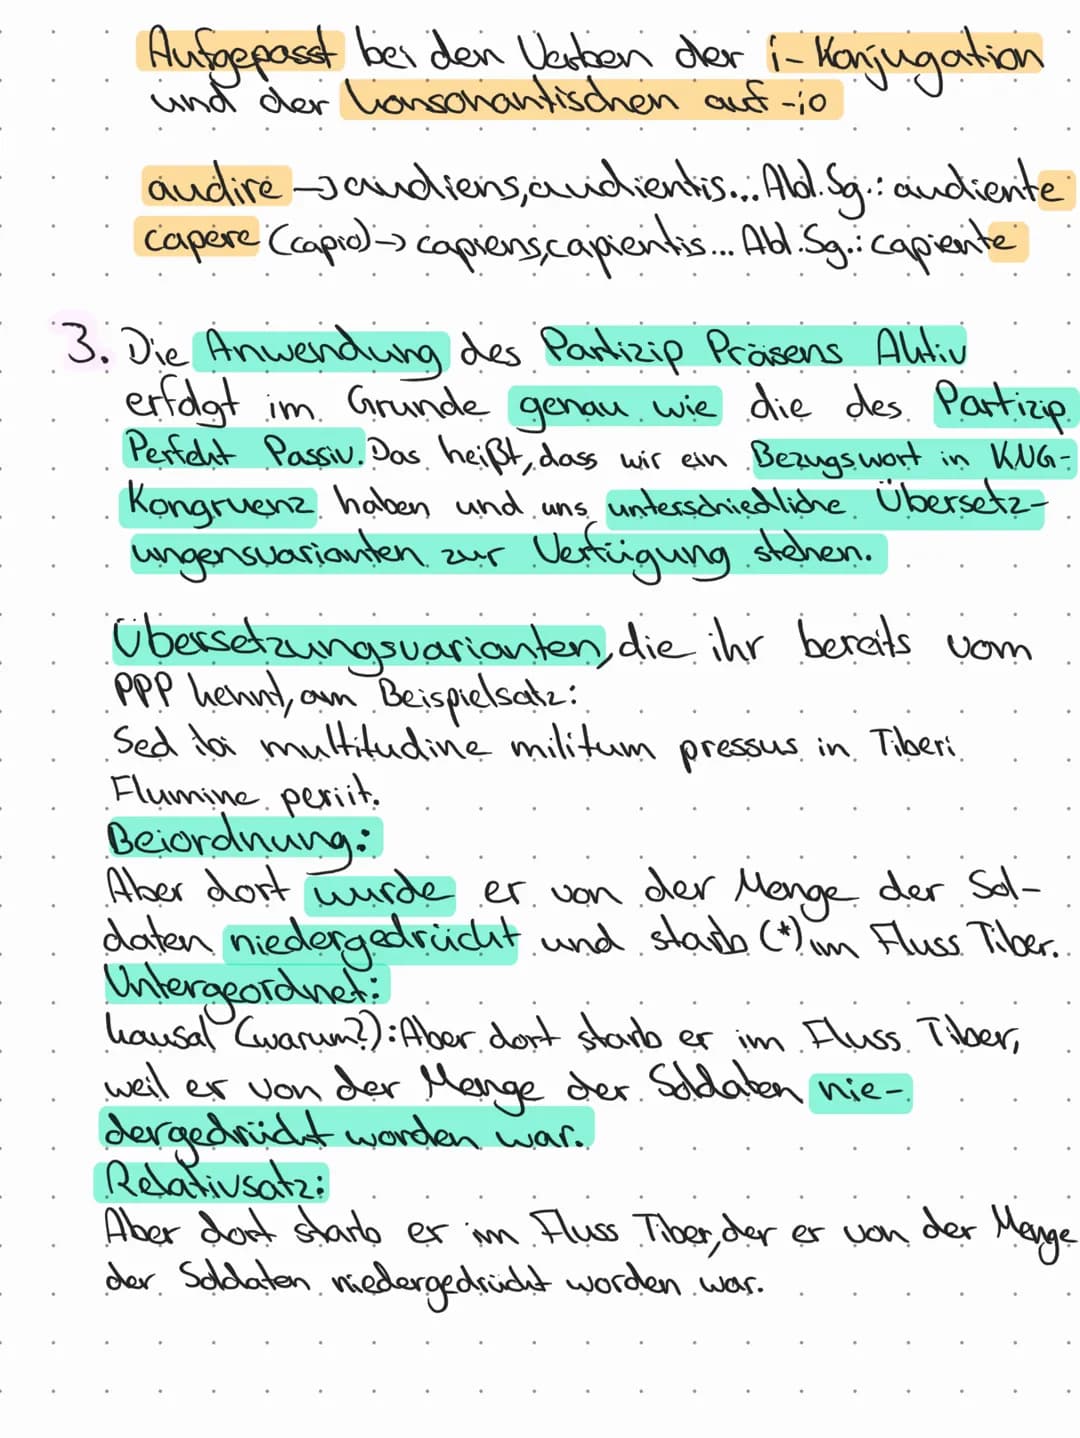 Aufgepasst bei den Verben der i-Konjugation
und der konsonantischen auf -io
audire → audiens, audientis... Abl. Sg.: audiente
capere (capio) → capiens, capientis... Abl. Sg.: capiente
3. Die Anwendung des Partizip Präsens Aktiv
erfolgt im Grunde genau wie die des Partizip
Perfekt Passiv. Das heißt, dass wir ein Bezugswort in KNG-
Kongruenz haben und uns unterschiedliche Übersetz-
ungensvarianten zur Verfügung stehen.
Übersetzungsvarianten, die ihr bereits vom
PPP kennt, am Beispielsatz:
Sed ibi multitudine militum pressus in Tiberi
Flumine periit.
Beiordnung:
Aber dort wurde er von der Menge der Sol-
daten niedergedrückt und starb (*) im Fluss Tiber.
Untergeordnet:
kausal (warum?): Aber dort starb er im Fluss Tiber,
weil er von der Menge der Soldaten nie-
dergedrückt worden war.
Relativsatz:
Aber dort starb er im Fluss Tiber, der er von der Menge
der Soldaten niedergedrückt worden war.